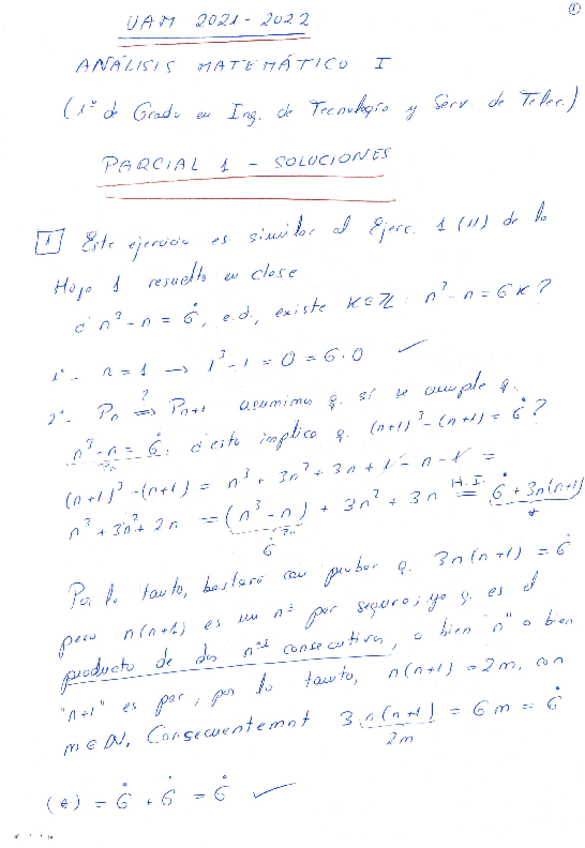 ①
UAM 2021-2022
ANÁLISIS MATEMÁTICO I
(1º de Grado en Ing. de Tecnología y Serv. de Telec.)
PARCIAL 1 - SOLUCIONES
1 Este ejercicio es similar al Ejerc. 1 (ii) de la
Hoja 1 resuelto en clase
¿ n³-n = 6̇, e.d., existe K∈ℤ: n³-n = 6K?
1º- n=1 → 1³-1 = 0 = 6·0 ✓
2º- Pn ?⟹ Pn+1 asumimos q. sí se cumple q.
n³-n = 6̇; ¿esto implica q. (n+1)³-(n+1) = 6̇?
(n+1)³-(n+1) = n³+3n²+3n+1-n-1 =
n³+3n²+2n = (n³-n) + 3n²+3n H.I.= 6̇ + 3n(n+1)
6̇ *
Por lo tanto, bastará con probar q. 3n(n+1) = 6̇
pero n(n+1) es un nº par seguro; ya q. es el
producto de dos nºs consecutivos, o bien "n" o bien
"n+1" es par, por lo tanto, n(n+1) = 2m, con
m∈ℕ. Consecuentemnt 3 n(n+1) = 6m = 6̇
2m
(*) = 6̇ + 6̇ = 6̇ ✓